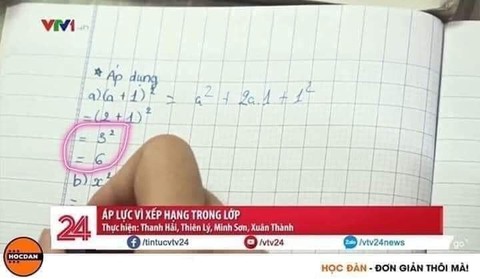 VTV1
* Áp dụng
a) (a + 1)² = a² + 2a.1 + 1²
= (2 + 1)²
= 3²
= 6
b) x²
=
24
ÁP LỰC VÌ XẾP HẠNG TRONG LỚP
Thực hiện: Thanh Hải, Thiên Lý, Minh Sơn, Xuân Thành
/tintucvtv24
/vtv24
Zalo /vtv24news
HOCDAN
HỌC ĐÀN - ĐƠN GIẢN THÔI MÀ!